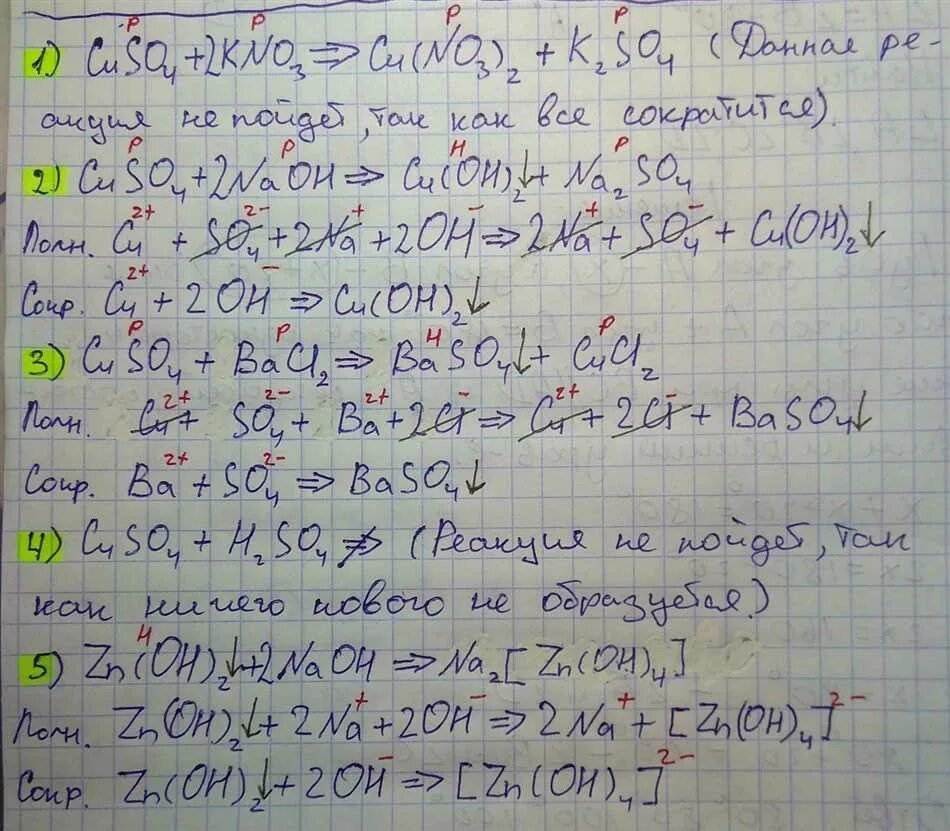 1) CuSO₄+2KNO₃⇒Cu(NO₃)₂ + K₂SO₄ (Данная ре-
акция не пойдет, так как все сократится).
2) CuSO₄+2NaOH⇒ Cu(OH)₂↓+ Na₂SO₄
Полн. Cu²⁺ + SO₄²⁻+2Na⁺+2OH⁻⇒2Na⁺+ SO₄⁻ + Cu(OH)₂↓
Сокр. Cu²⁺ + 2OH⁻ ⇒ Cu(OH)₂↓
3) CuSO₄ + BaCl₂⇒ BaSO₄↓+ CuCl₂
Полн. Cu²⁺+ SO₄²⁻+ Ba²⁺+2Cl⁻⇒ Cu²⁺+2Cl⁻+ BaSO₄↓
Сокр. Ba²⁺+ SO₄²⁻ ⇒ BaSO₄↓
4) CuSO₄ + H₂SO₄ ⇏ (Реакция не пойдет, так
как ничего нового не образуется.)
5) Zn(OH)₂↓+2NaOH ⇒Na₂[Zn(OH)₄]
Полн. Zn(OH)₂↓+ 2Na⁺+2OH⁻⇒ 2Na⁺+ [Zn(OH)₄]²⁻
Сокр. Zn(OH)₂↓+ 2OH⁻⇒ [Zn(OH)₄]²⁻